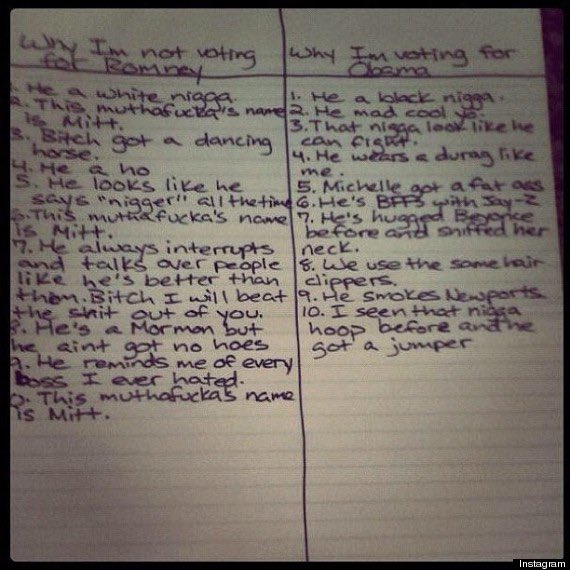 Why I'm not voting
for Romney
1. He a white nigga
2. This muthafucka's name
is Mitt.
3. Bitch got a dancing
horse.
4. He a ho
5. He looks like he
says "nigger" all the time
6. This muthafucka's name
is Mitt.
7. He always interrupts
and talks over people
like he's better than
them. Bitch I will beat
the shit out of you.
8. He's a Mormon but
he aint got no hoes
9. He reminds me of every
boss I ever hated.
0. This muthafucka's name
is Mitt.
Why I'm voting for
Obama
1. He a black nigga.
2. He mad cool yo.
3. That nigga look like he
can fight.
4. He wears a durag like
me.
5. Michelle got a fat ass
6. He's BFFS with Jay-Z
7. He's hugged Beyonce
before and sniffed her
neck.
8. We use the same hair
clippers.
9. He smokes Newports
10. I seen that nigga
hoop before and he
got a jumper
Instagram